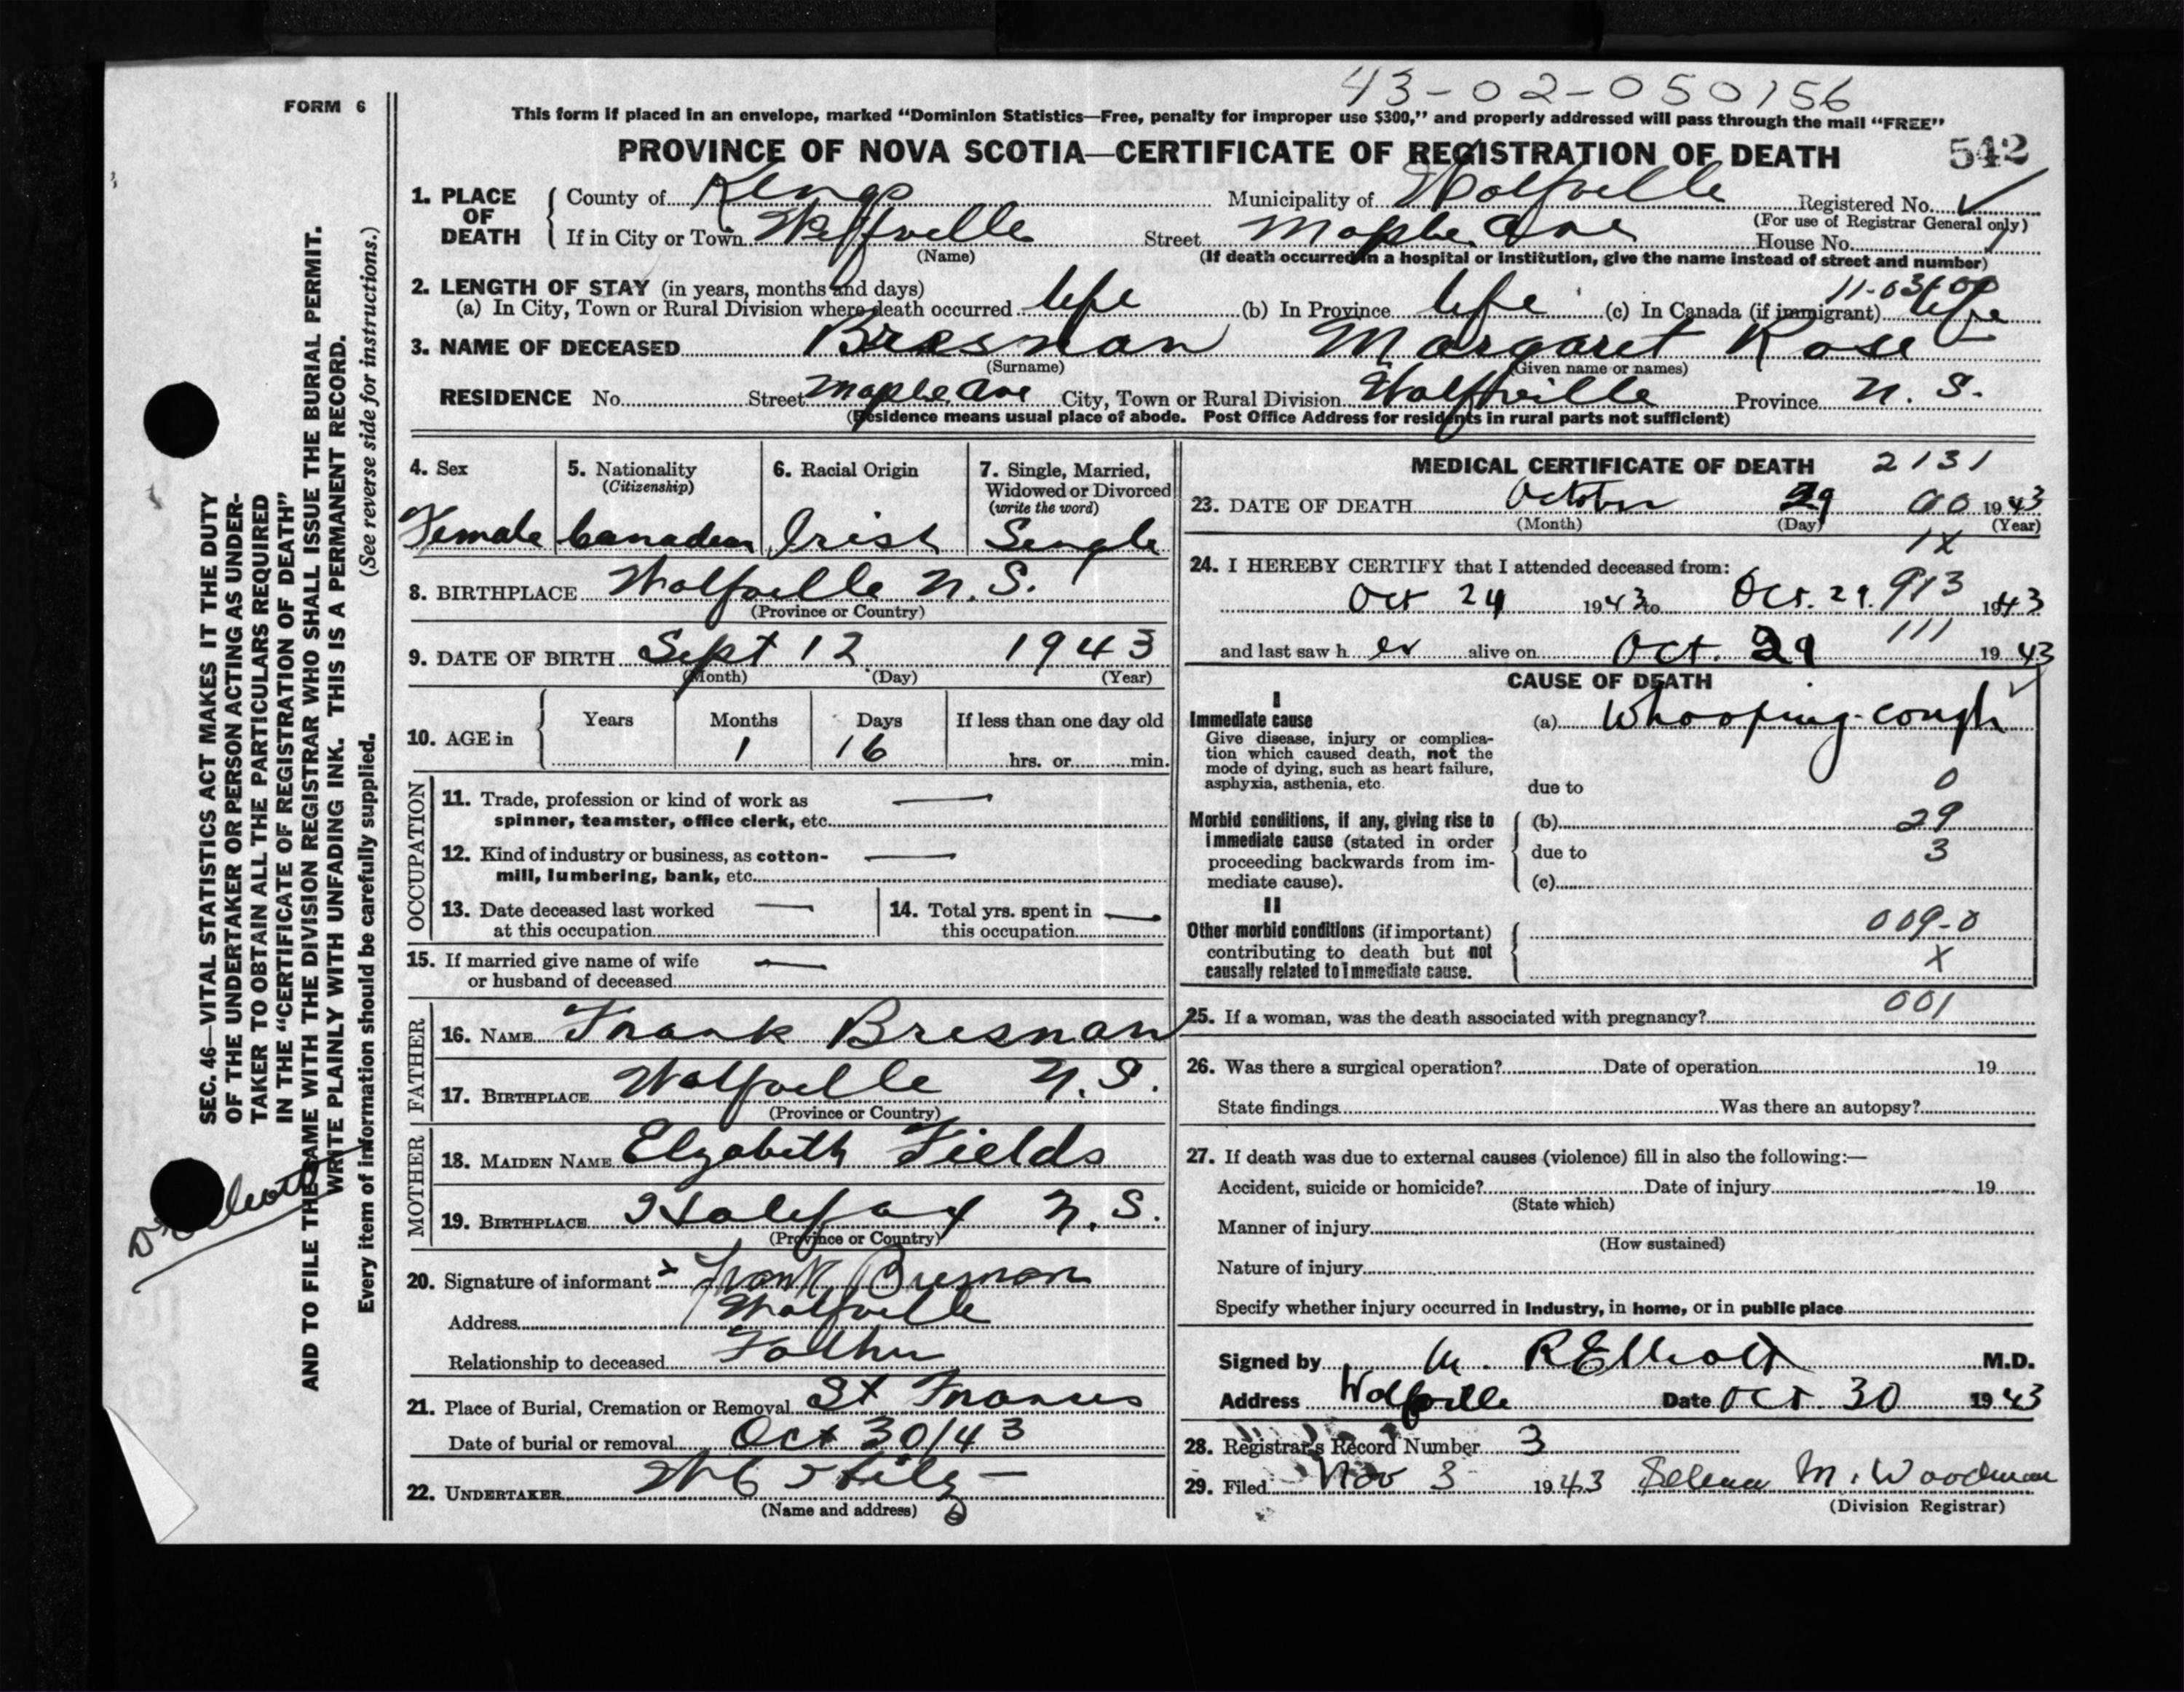 43-02-050156
FORM 6
This form if placed in an envelope, marked “Dominion Statistics—Free, penalty for improper use $300,” and properly addressed will pass through the mail “FREE”
PROVINCE OF NOVA SCOTIA—CERTIFICATE OF REGISTRATION OF DEATH 542
1. PLACE OF DEATH County of Kings Municipality of Wolfville Registered No. ✓
(For use of Registrar General only)
If in City or Town Wolfville Street Maple Ave House No.
(Name) (If death occurred in a hospital or institution, give the name instead of street and number)
2. LENGTH OF STAY (in years, months and days) 11-03-00
(a) In City, Town or Rural Division where death occurred life (b) In Province life (c) In Canada (if immigrant) life
3. NAME OF DECEASED Bresnan Margaret Rose
(Surname) (Given name or names)
RESIDENCE No. Street Maple Ave City, Town or Rural Division Wolfville Province N. S.
(Residence means usual place of abode. Post Office Address for residents in rural parts not sufficient)
4. Sex 5. Nationality (Citizenship) 6. Racial Origin 7. Single, Married, Widowed or Divorced (write the word)
Female Canadian Irish Single
8. BIRTHPLACE Wolfville N. S.
(Province or Country)
9. DATE OF BIRTH Sept 12 1943
(Month) (Day) (Year)
10. AGE in Years Months Days If less than one day old
1 16 hrs. or min.
OCCUPATION
11. Trade, profession or kind of work as —
spinner, teamster, office clerk, etc.
12. Kind of industry or business, as cotton- —
mill, lumbering, bank, etc.
13. Date deceased last worked — 14. Total yrs. spent in —
at this occupation this occupation
15. If married give name of wife —
or husband of deceased
FATHER
16. NAME Frank Bresnan
17. BIRTHPLACE Wolfville N. S.
(Province or Country)
MOTHER
18. MAIDEN NAME Elzabeth Fields
19. BIRTHPLACE Halifax N. S.
(Province or Country)
20. Signature of informant x Frank Bresnan
Address Wolfville
Relationship to deceased Father
21. Place of Burial, Cremation or Removal St Francis
Date of burial or removal Oct 30/43
22. UNDERTAKER
(Name and address)
MEDICAL CERTIFICATE OF DEATH 2131
23. DATE OF DEATH October 29 00 1943
(Month) (Day) (Year)
1X
24. I HEREBY CERTIFY that I attended deceased from:
Oct 24 1943 to Oct. 29. 913 1943
111
and last saw h er alive on Oct. 29 1943
CAUSE OF DEATH
I
Immediate cause (a) Whooping-cough
Give disease, injury or complica-
tion which caused death, not the
mode of dying, such as heart failure,
asphyxia, asthenia, etc. due to 0
Morbid conditions, if any, giving rise to (b) 29
immediate cause (stated in order due to 3
proceeding backwards from im-
mediate cause). (c)
II
Other morbid conditions (if important) 009-0
contributing to death but not
causally related to immediate cause. X
001
25. If a woman, was the death associated with pregnancy?
26. Was there a surgical operation? Date of operation 19
State findings Was there an autopsy?
27. If death was due to external causes (violence) fill in also the following:—
Accident, suicide or homicide? Date of injury 19
(State which)
Manner of injury
(How sustained)
Nature of injury
Specify whether injury occurred in Industry, in home, or in public place
Signed by M. R Elliott M.D.
Address Wolfville Date Oct 30 1943
28. Registrar's Record Number 3
29. Filed Nov 3 1943 M. Woodman
(Division Registrar)
SEC. 46—VITAL STATISTICS ACT MAKES IT THE DUTY
OF THE UNDERTAKER OR PERSON ACTING AS UNDER-
TAKER TO OBTAIN ALL THE PARTICULARS REQUIRED
IN THE “CERTIFICATE OF REGISTRATION OF DEATH”
AND TO FILE THE SAME WITH THE DIVISION REGISTRAR WHO SHALL ISSUE THE BURIAL PERMIT.
WRITE PLAINLY WITH UNFADING INK. THIS IS A PERMANENT RECORD.
Every item of information should be carefully supplied. (See reverse side for instructions.)
Dr Elliott